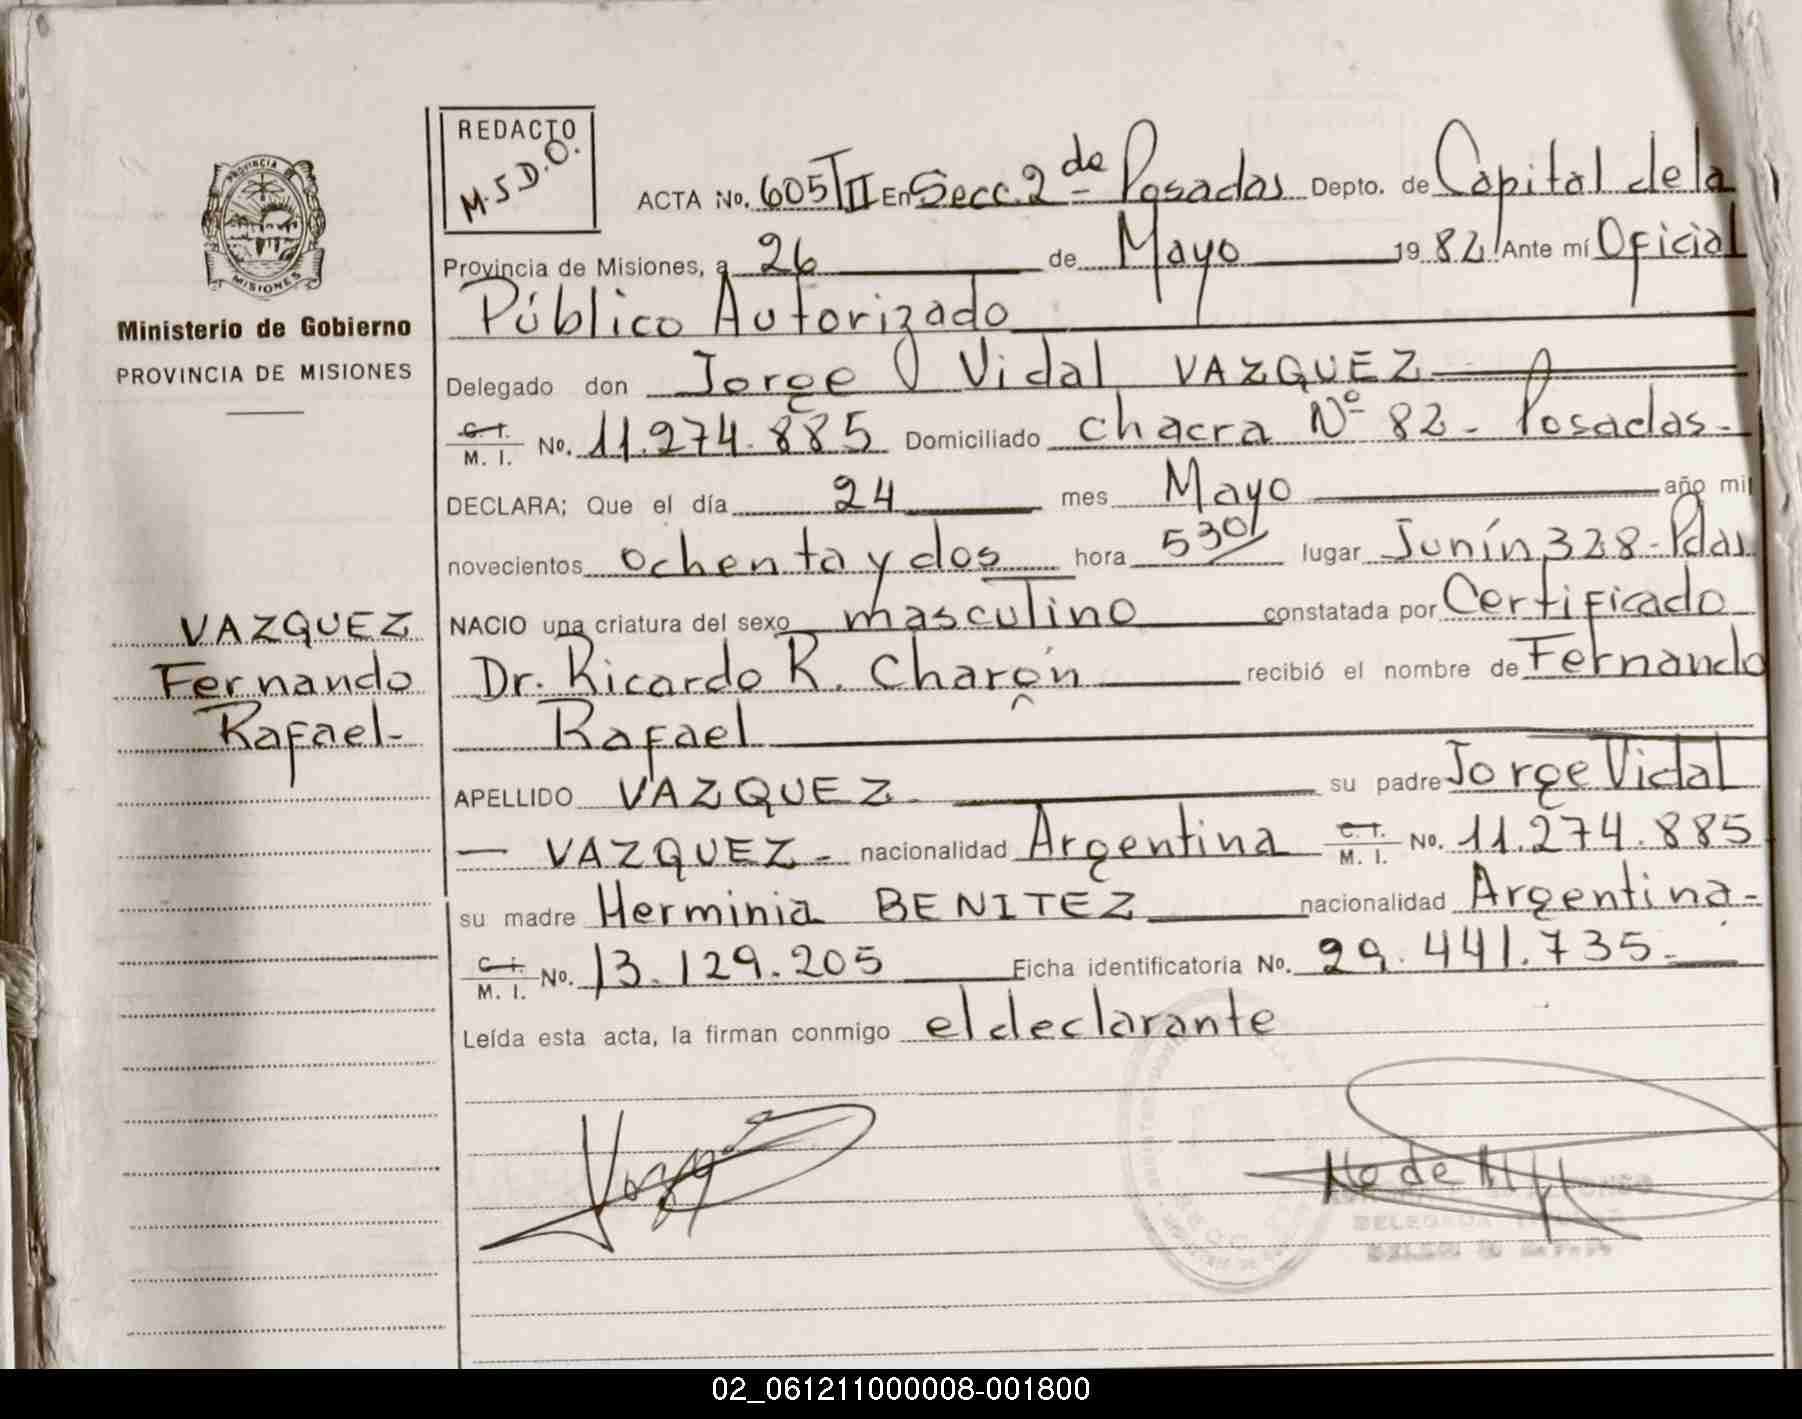 REDACTO
M.S.D.O.
ACTA No. 605 TII En Secc. 2da Posadas Depto. de Capital de la
Provincia de Misiones, a 26 de Mayo 1982 Ante mí Oficial
Público Autorizado
Delegado don Jorge Vidal VAZQUEZ
C. I. / M. I. No. 11.274.885 Domiciliado chacra Nº 82 - Posadas-
DECLARA; Que el día 24 mes Mayo año mil
novecientos ochenta y dos hora 530 lugar Junín 328- Pdas
NACIO una criatura del sexo masculino constatada por Certificado
Dr. Ricardo R. Charón recibió el nombre de Fernando
Rafael
APELLIDO VAZQUEZ su padre Jorge Vidal
VAZQUEZ - nacionalidad Argentina C. I. / M. I. No. 11.274.885
su madre Herminia BENITEZ nacionalidad Argentina-
C. I. / M. I. No. 13.129.205 Ficha identificatoria No. 29.441.735-
Leída esta acta, la firman conmigo el declarante
PROVINCIA
MISIONES
Ministerio de Gobierno
PROVINCIA DE MISIONES
VAZQUEZ
Fernando
Rafael-
02_061211000008-001800